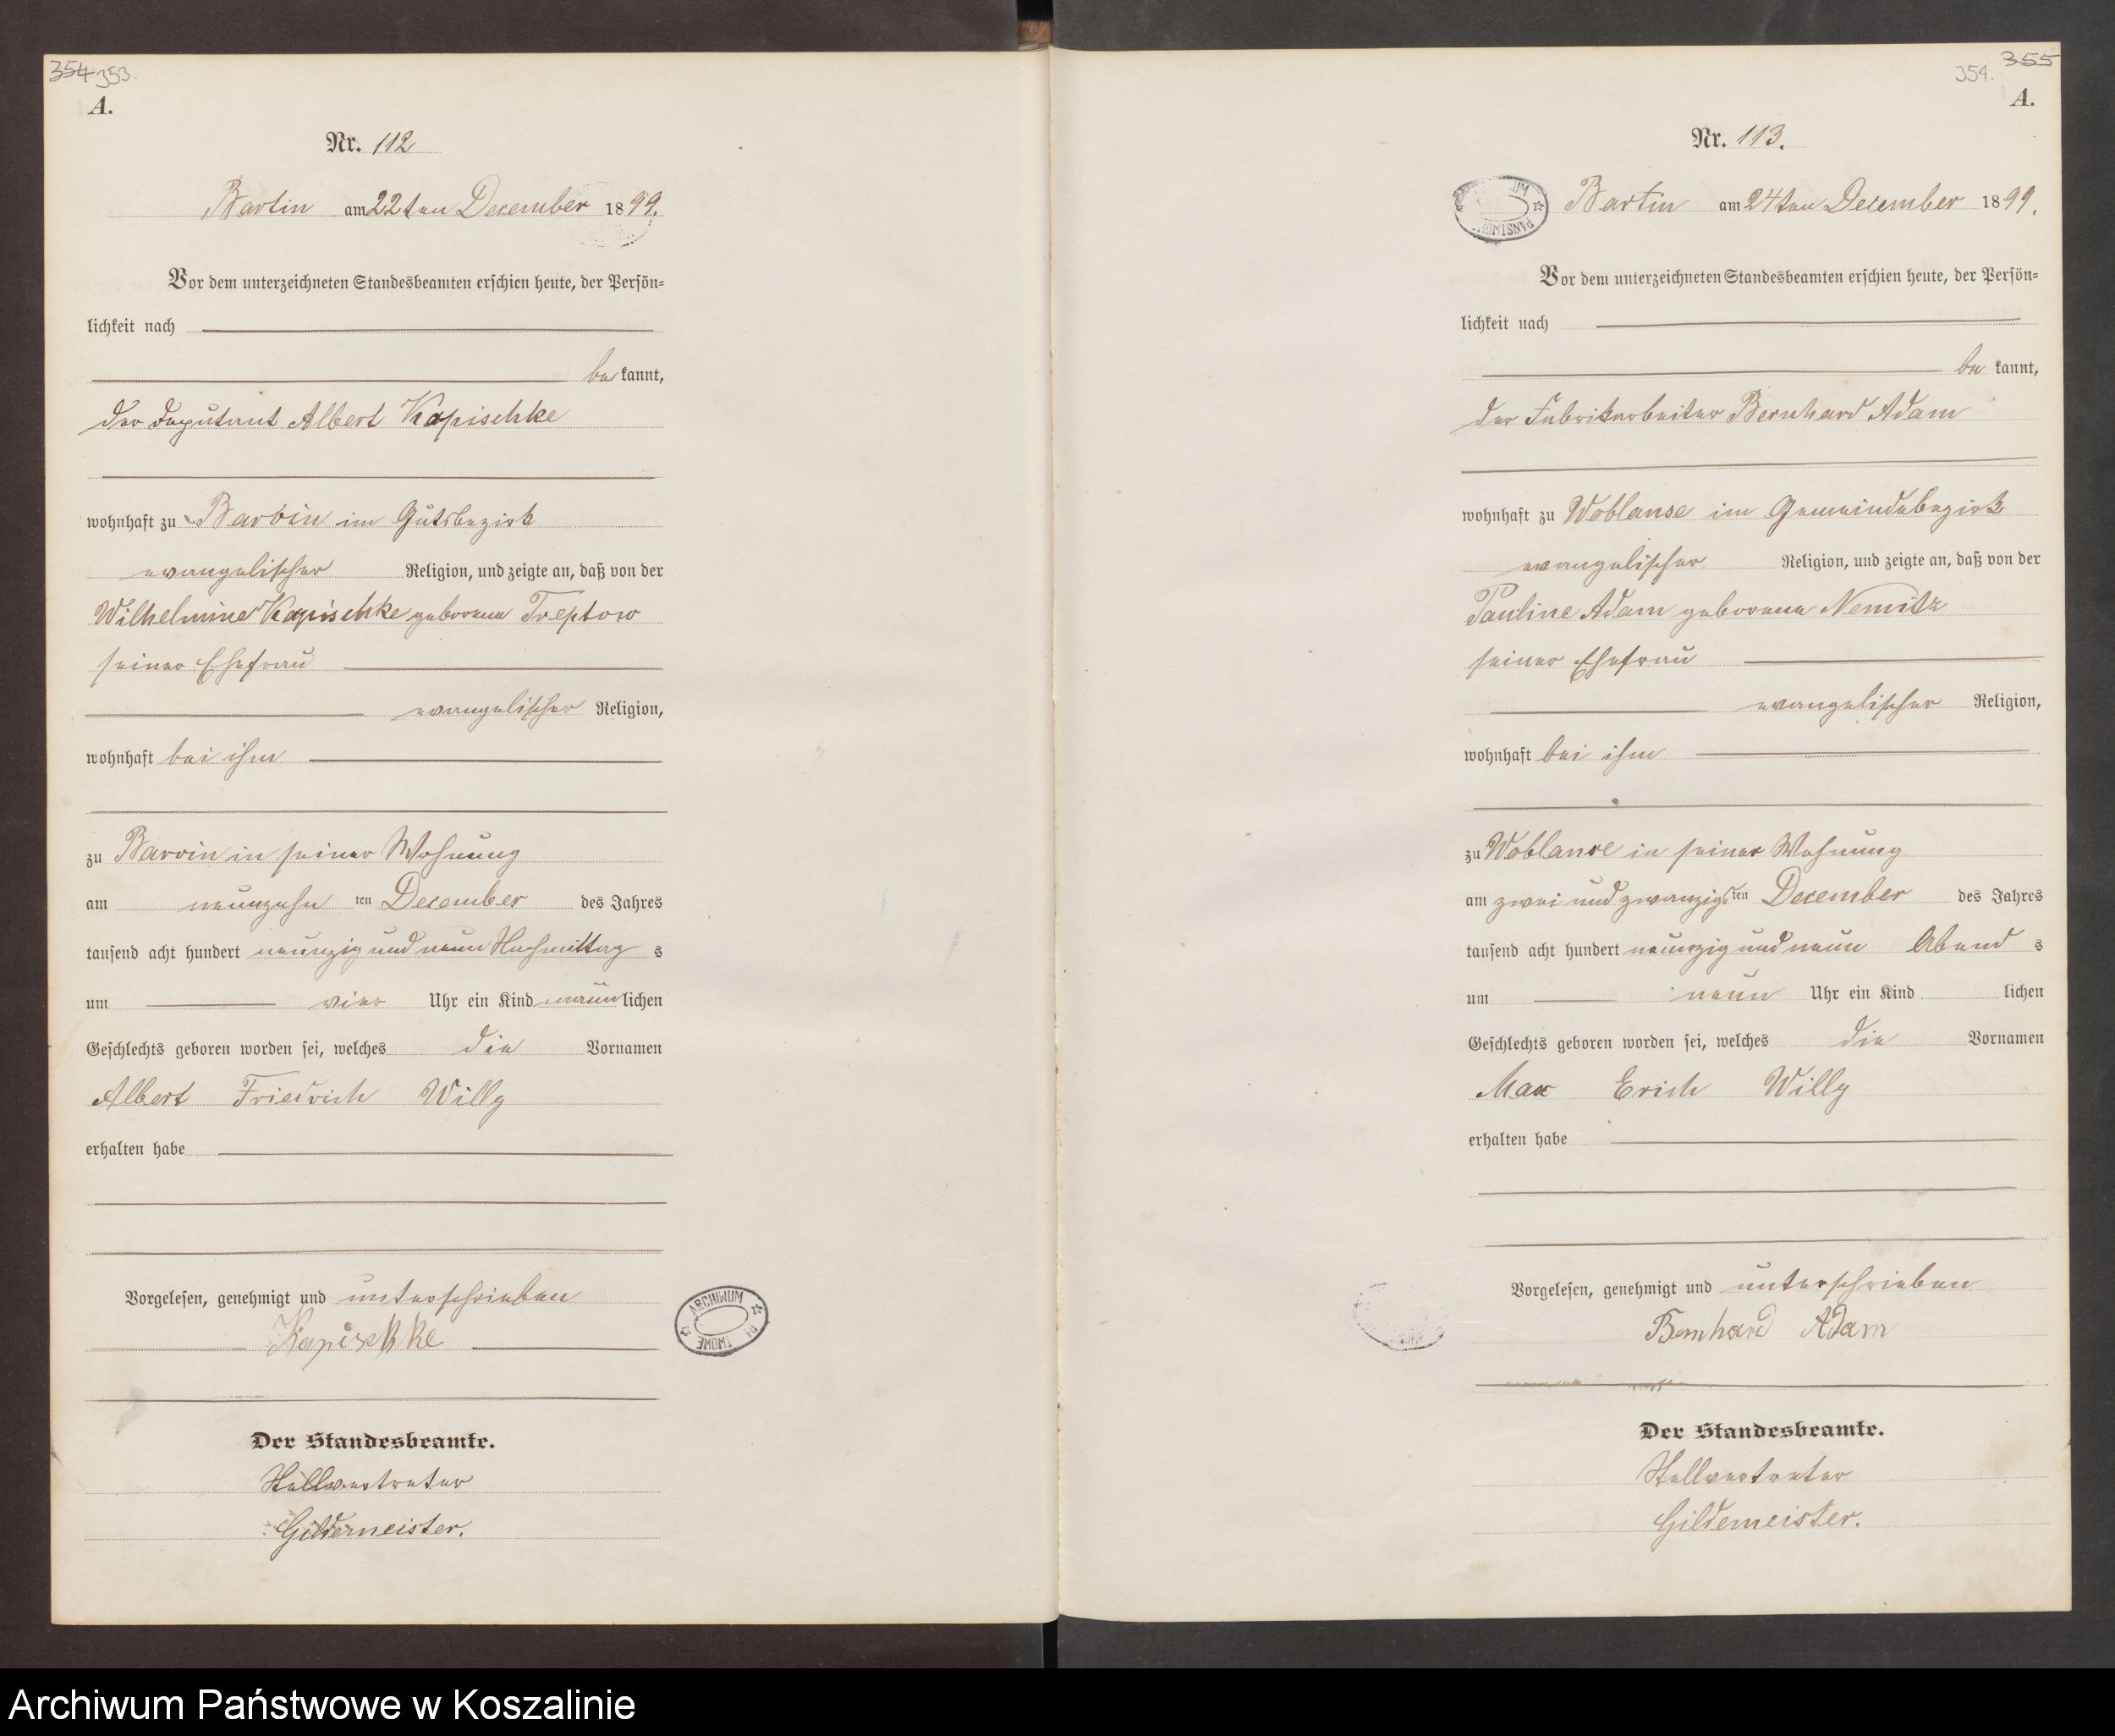 354 353.
A.
Nr. 112
Bartin am 22ten December 1899.
Vor dem unterzeichneten Standesbeamten erschien heute, der Persön=
lichkeit nach
bekannt,
der Deputant Albert Kapischke
wohnhaft zu Barvin im Gutsbezirk
evangelischer Religion, und zeigte an, daß von der
Wilhelmine Kapischke geborene Treptow
seiner Ehefrau
evangelischer Religion,
wohnhaft bei ihm
zu Barvin in seiner Wohnung
am neunzehn ten December des Jahres
tausend acht hundert neunzig und neun Nachmittag s
um vier Uhr ein Kind männlichen
Geschlechts geboren worden sei, welches die Vornamen
Albert Friedrich Willy
erhalten habe
Vorgelesen, genehmigt und unterschrieben
Kapischke
ARCHIWUM
Der Standesbeamte.
Stellvertreter
Gildemeister.
354. 355
A.
Nr. 113.
Bartin am 24ten December 1899.
Vor dem unterzeichneten Standesbeamten erschien heute, der Persön=
lichkeit nach
be kannt,
der Fabrikarbeiter Bernhard Adam
wohnhaft zu Woblanse im Gemeindebezirk
evangelischer Religion, und zeigte an, daß von der
Pauline Adam geborene Nemitz
seiner Ehefrau
evangelischer Religion,
wohnhaft bei ihm
zu Woblanse in seiner Wohnung
am zwei und zwanzigsten December des Jahres
tausend acht hundert neunzig und neun Abend s
um neun Uhr ein Kind lichen
Geschlechts geboren worden sei, welches die Vornamen
Max Erich Willy
erhalten habe
Vorgelesen, genehmigt und unterschrieben
Bernhard Adam
Der Standesbeamte.
Stellvertreter
Gildemeister.
Archiwum Państwowe w Koszalinie